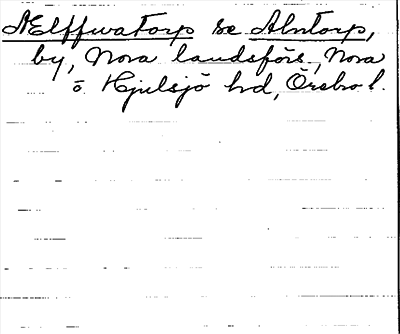 Ælffwatorp se Alntorp,
by, Nora landsförs., Nora
o. Hjulsjö hd, Örebro l.